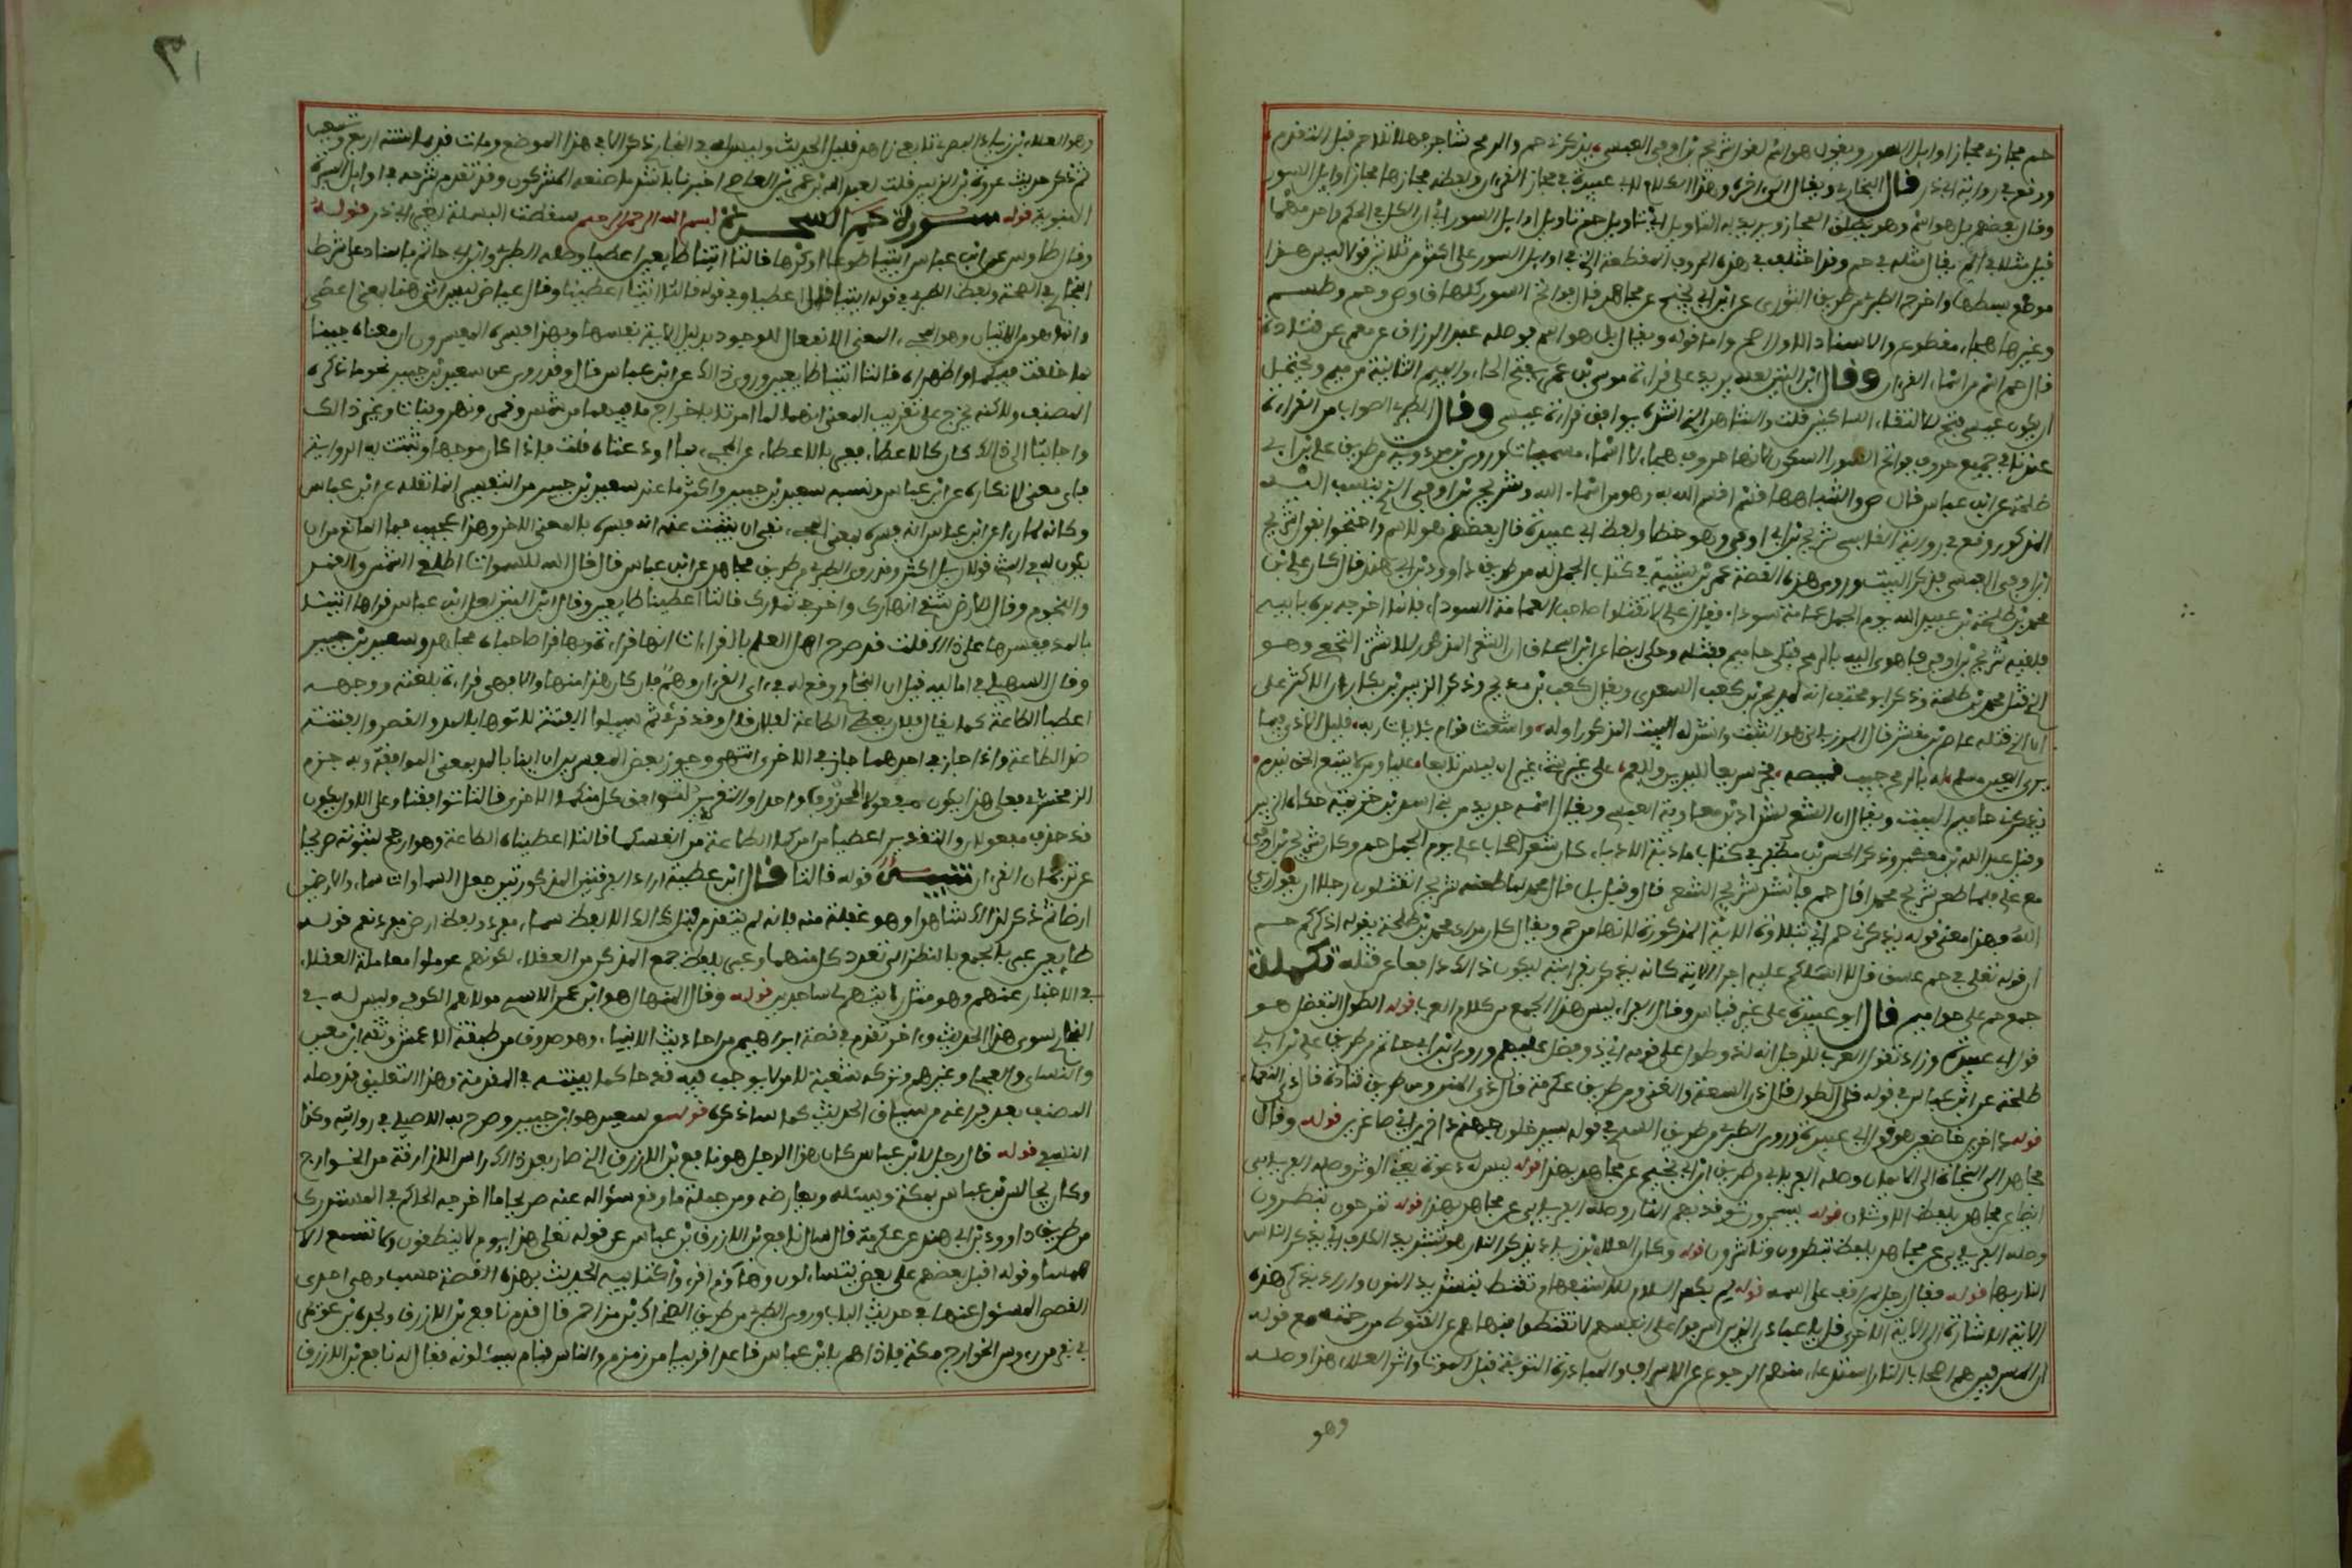 حم مجازها مجاز اوايل السور ويقال بل هو اسم لقول شريح بن اوفى العبسي يذكرني حم والرمح شاجر فهلا تلا حم قبل التقدم
ووقع في رواية ابي ذر قال البخاري ويقال الى اخره وهذا الكلام لابي عبيدة في مجاز القرءان ولفظه مجازها مجاز اوايل السور
وقال بعضهم بل هو اسم وهو يطلق المجاز ويريد به التاويل اي تاويل حم تاويل اوايل السور اي ان الكل في الحكم واحد فمهما
قيل مثلا في الم يقال مثله في حم وقد اختلف في هذه الحروف المقطعة التي في اوايل السور على اكثر من ثلاثين قولا ليس هذا
موضع بسطها واخرج الطبري من طريق الثوري عن ابن ابي نجيح عن مجاهد قال فواتح السور كلها ق وص وحم وطسم
وغيرها هجاء مقطوع والاسناد الاول اصح واما قوله ويقال بل هو اسم فوصله عبد الرزاق عن معمر عن قتادة
قال حم اسم من اسماء القرءان وقال ابن التين لعله يريد على قراءة عيسى بن عمر بفتح الحاء والميم الثانية من ميم ويحتمل
ان يكون عيسى فتح لالتقاء الساكنين قلت والشاهد الذي انشده يوافق قراءة عيسى وقال الطبري الصواب من القراءة
عندنا في جميع حروف فواتح السور السكون لانها حروف هجاء لا اسماء مسميات وروى ابن مردويه من طريق علي بن ابي
طلحة عن ابن عباس قال ص واشباهها قسم اقسم الله به وهو من اسماء الله وشريح بن اوفى الذي ينسب اليه
المذكور وقع في رواية القابسي شريح بن ابي اوفى وهو خطا ولفظ ابي عبيدة قال بعضهم هو اسم واحتجوا بقول شريح
ابن اوفى العبسي فذكر البيت وروى هذه القصة عمر بن شبة في كتاب الجمل له من طريق داوود بن ابي هند قال كان على
محمد بن طلحة بن عبيد الله يوم الجمل عمامة سوداء فقال علي لا تقتلوا صاحب العمامة السوداء فانما اخرجه بره بابيه
فلقيه شريح بن اوفى فاهوى اليه بالرمح فتلى حاميم فقتله وحكى ايضا عن ابن اسحاق ان الشعر المذكور للاشتر النخعي وهو
الذي قتل محمد بن طلحة وذكر ابو مخنف انه لمدلج بن كعب السعدي ويقال كعب بن مدلج وذكر الزبير بن بكار ان الاكثر على
ان الذي قتله عصام بن مقشعر قال المرزباني هو الثبت وانشد له البيت المذكور اوله واشعث قوام بايات ربه قليل الاذى فيما
ترى العين مسلم هتكت له بالرمح جيب قميصه فخر صريعا لليدين وللفم على غير شيء غير ان ليس تابعا عليا ومن لا يتبع الحق يندم
يذكرني حاميم البيت ويقال ان الشعر لشداد بن معاوية العبسي ويقال اسمه حديد من بني اسد بن خزيمة حكاه الزبير
وقيل عبد الله بن معكبر وذكر الحسن بن مظفر في كتاب مادبة الادباء كان شعار اصحاب علي يوم الجمل حم وكان شريح بن اوفى
مع علي فلما طعن شريح محمدا قال حم فانشد شريح الشعر قال وقيل بل قال محمد لما طعنه شريح اتقتلون رجلا ان يقول ربي
الله فهذا معنى قوله يذكرني حم اي بتلاوة الاية المذكورة لانها من حم ويقال كان مراد محمد بن طلحة بقوله اذكركم حم
ان قوله تعلى في حم عسق قل لا اسئلكم عليه اجرا الاية كانه يذكره بقرابته ليكون ذالك دافعا عن قتله تكملة
جمع حم على حواميم قال ابو عبيدة على غير قياس وقال الفراء ليس هذا الجمع من كلام العرب قوله الطول التفضل هو
قول ابي عبيدة وزاد تقول العرب للرجل انه لذو طول على قومه اي ذو فضل عليهم وروى ابن ابي حاتم من طريق علي بن ابي
طلحة عن ابن عباس في قوله ذي الطول قال ذي السعة والغنى ومن طريق عكرمة قال ذي المنن ومن طريق قتادة قال ذي النعماء
قوله داخرين خاضعين هو قول ابي عبيدة وروى الطبري من طريق السدي في قوله سيدخلون جهنم داخرين اي صاغرين قوله وقال
مجاهد الى النجاة الى الايمان وصله الفريابي من طريق ابن ابي نجيح عن مجاهد بهذا قوله ليس له دعوة يعني الوثن وصله الفريابي
ايضا عن مجاهد بلفظ الاوثان قوله يسجرون توقد بهم النار وصله الفريابي عن مجاهد بهذا قوله تمرحون تبطرون
وصله الفريابي عن مجاهد بلفظ تبطرون وتاشرون قوله وكان العلاء بن زياد يذكر النار هو بتشديد الكاف اي يذكر الناس
النار بها قوله فقال رجل لم اقف على اسمه قوله لم بكسر اللام للاستفهام وتقنط بتشديد النون واراد بذكر هذه
الاية الاشارة الى الاية الاخرى قل يا عبادي الذين اسرفوا على انفسهم لا تقنطوا فنهاهم عن القنوط من رحمته مع قوله
ان المسرفين هم اصحاب النار استدعاء منهم الرجوع عن الاسراف والمبادرة الى التوبة قبل الموت واثر العلاء هذا وصله
وهو
٣١
وهو العلاء بن زياد البصري تابعي زاهد قليل الحديث وليس له في البخاري ذكر الا في هذا الموضع ومات قديما سنة اربع وتسعين
ثم ذكر حديث عروة بن الزبير قلت لعبد الله بن عمرو بن العاصي اخبرنا باشد ما صنعه المشركون وقد تقدم شرحه في اوايل السيرة
النبوية قوله سورة حم السجدة بسم الله الرحمن الرحيم سقطت البسملة لغير ابي ذر قوله
وقال طاوس عن ابن عباس ايتيا طوعا او كرها قالتا اتينا طايعين اعطينا وصله الطبري وابن ابي حاتم باسناد على شرط
البخاري في الصحة ولفظ الطبري في قوله ايتيا قال اعطيا وفي قوله قالتا اتينا اعطينا وقال عياض ليس اتى هنا بمعنى اعطى
وانما هو من الاتيان وهو المجيء بمعنى الانفعال للوجود بدليل الاية نفسها وبهذا فسره المفسرون ان معناه جيئا
بما خلقت فيكما واظهراه قالتا اتينا طايعين وروي ذالك عن ابن عباس قال وقد روي عن سعيد بن جبير نحو ما ذكره
المصنف ولاكنه يخرج على تقريب المعنى انهما لما امرتا باخراج ما فيهما من شمس وقمر ونهر ونبات وغير ذالك
واجابتا الى ذالك كان كالاعطاء فعبر بالاعطاء عن المجيء بما اودعتاه قلت فاذا كان موجها وثبتت به الرواية
فاي معنى لانكاره عن ابن عباس ونسبه سعيد بن جبير
وكانه لما راى عن ابن عباس انه فسره بمعنى المجيء نفى ان يثبت عنه انه فسره بالمعنى الاخر وهذا عجيب فما المانع من ان
يكون له في الشيء قولان بل اكثر وقد روى الطبري من طريق مجاهد عن ابن عباس قال قال الله للسموات اطلعي الشمس والقمر
والنجوم وقال للارض شققي انهارك واخرجي ثمارك قالتا اتينا طايعين وقال ابن التين لعل ابن عباس قراها اتينا
بالمد ففسرها على ذالك قلت قد صرح اهل العلم بالقراءات انها قراءته وبها قرا صاحباه مجاهد وسعيد بن جبير
وقال السهيلي في اماليه قيل ان البخاري وقع له في اي من القرءان وهم فان كان هذا منها والا فهي قراءة بلغته ووجهه
اعطيا الطاعة كما يقال فلان يعطي الطاعة لفلان قال وقد قرئ ثم سيلوا الفتنة لاتوها بالمد والقصر والفتنة
ضد الطاعة واذا جاز في احدهما جاز في الاخرى انتهى وجوز بعض المفسرين ان اتينا بالمد بمعنى الموافقة وبه جزم
الزمخشري فعلى هذا يكون المحذوف مفعولا واحدا والتقدير لتوافق كل منكما الاخرى قالتا توافقنا وعلى الاول يكون
قد حذف مفعولان والتقدير اعطيا من امركما الطاعة من انفسكما قالتا اعطيناه الطاعة وهو ارجح لثبوته صريحا
عن ترجمان القرءان تنبيه قوله قالتا قال ابن عطية اراد الفرقتين المذكورتين جعل السماوات سماء والارضين
ارضا ثم ذكر لذالك شاهدا وهو غفلة منه فانه لم يتقدم قبل ذالك الا لفظ سماء مفرد ولفظ ارض مفرد نعم قوله
طايعين عبر بالجمع بالنظر الى تعدد كل منهما وعبر بلفظ جمع المذكر من العقلاء لكونهم عوملوا معاملة العقلاء
في الاخبار عنهم وهو مثل رايتهم لي ساجدين قوله وقال المنهال هو ابن عمرو الاسدي مولاهم الكوفي وليس له في
البخاري سوى هذا الحديث واخر تقدم في قصة ابراهيم من احاديث الانبياء وهو صدوق من طبقة الاعمش وثقه ابن معين
والنساءي والعجلي وغيرهم وتركه شعبة لامر لا يوجب فيه قدحا كما بينته في المقدمة وهذا التعليق قد وصله
المصنف بعد فراغه من سياق الحديث كما ساذكره قوله عن سعيد هو ابن جبير وصرح به الاصيلي في روايته وكذا
النسفي قوله قال رجل لابن عباس كان هذا الرجل هو نافع بن الازرق الذي صار بعد ذالك راس الازارقة من الخوارج
وكان يجالس ابن عباس بمكة ويسئله ويعارضه ومن جملة ما وقع سؤاله عنه صريحا ما اخرجه الحاكم في المستدرك
من طريق داوود بن ابي هند عن عكرمة قال سال نافع بن الازرق ابن عباس عن قوله تعلى هذا يوم لا ينطقون ولا تسمع الا
همسا وقوله اقبل بعضهم على بعض يتساءلون وهاؤم اقرءوا كتابيه الحديث بهذه القصة حسب وهي احدى
القصص المسئول عنها في حديث الباب وروى الطبري من طريق الضحاك بن مزاحم قال قدم نافع بن الازرق ونجدة بن عويمر
في نفر من رءوس الخوارج مكة فاذا هم بابن عباس قاعدا قريبا من زمزم والناس قيام يسئلونه فقال له نافع بن الازرق